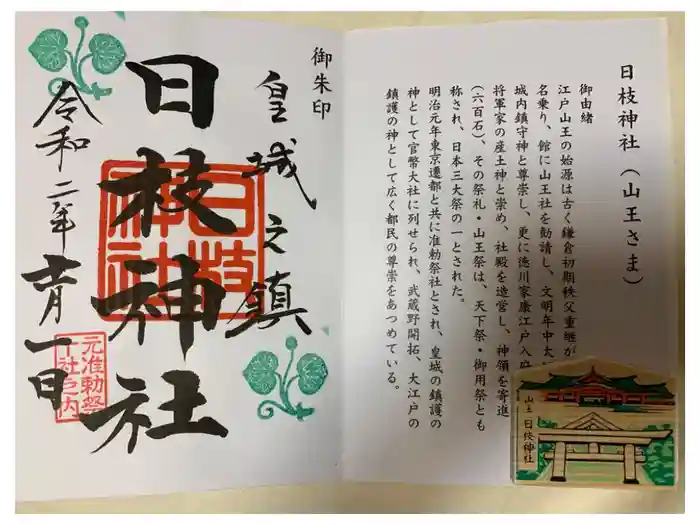 日枝神社（山王さま）
御由緒
江戸山王の始源は古く鎌倉初期秩父重継が
名乗り、館に山王社を勧請し、文明年中太
城内鎮守神と尊崇し、更に徳川家康江戸入府
将軍家の産土神と崇め、社殿を造営し、神領を寄進
（六百石）、その祭礼・山王祭は、天下祭・御用祭とも
称され、日本三大祭の一とされた。
明治元年東京遷都と共に准勅祭社とされ、皇城の鎮護の
神として官幣大社に列せられ、武蔵野開拓、大江戸の
鎮護の神として広く都民の尊崇をあつめている。
山王 日枝神社
御朱印
皇城之鎮
日枝神社
日枝
神社
令和二年十一月一日
元准勅祭
十社之内